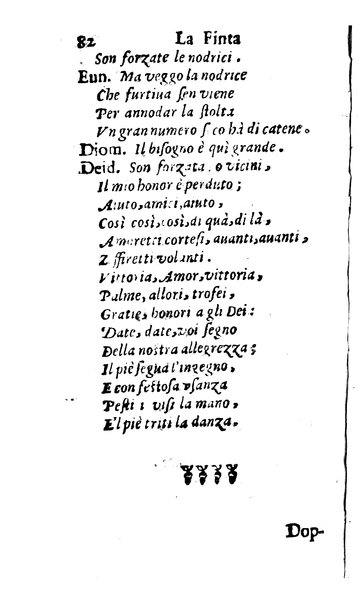 82 La Finta
Son forzate le nodrici.
Eun. Ma veggo la nodrice
Che furtiua sen viene
Per annodar la stolta
Vn gran numero seco hà di catene.
Diom. Il bisogno è quì grande.
Deid. Son forzata, o vicini,
Il mio honor è perduto;
Aiuto, amici, aiuto,
Così così, così, di quà, di là,
Amoretti cortesi, auanti, auanti,
Zeffiretti volanti.
Vittoria, Amor, vittoria,
Palme, allori, trofei,
Gratie, honori a gli Dei:
Date, date, voi segno
Della nostra allegrezza;
Il piè segua l'ingegno,
E con festosa vsanza
Pesti i visi la mano,
E'l piè triti la danza.
Dop-